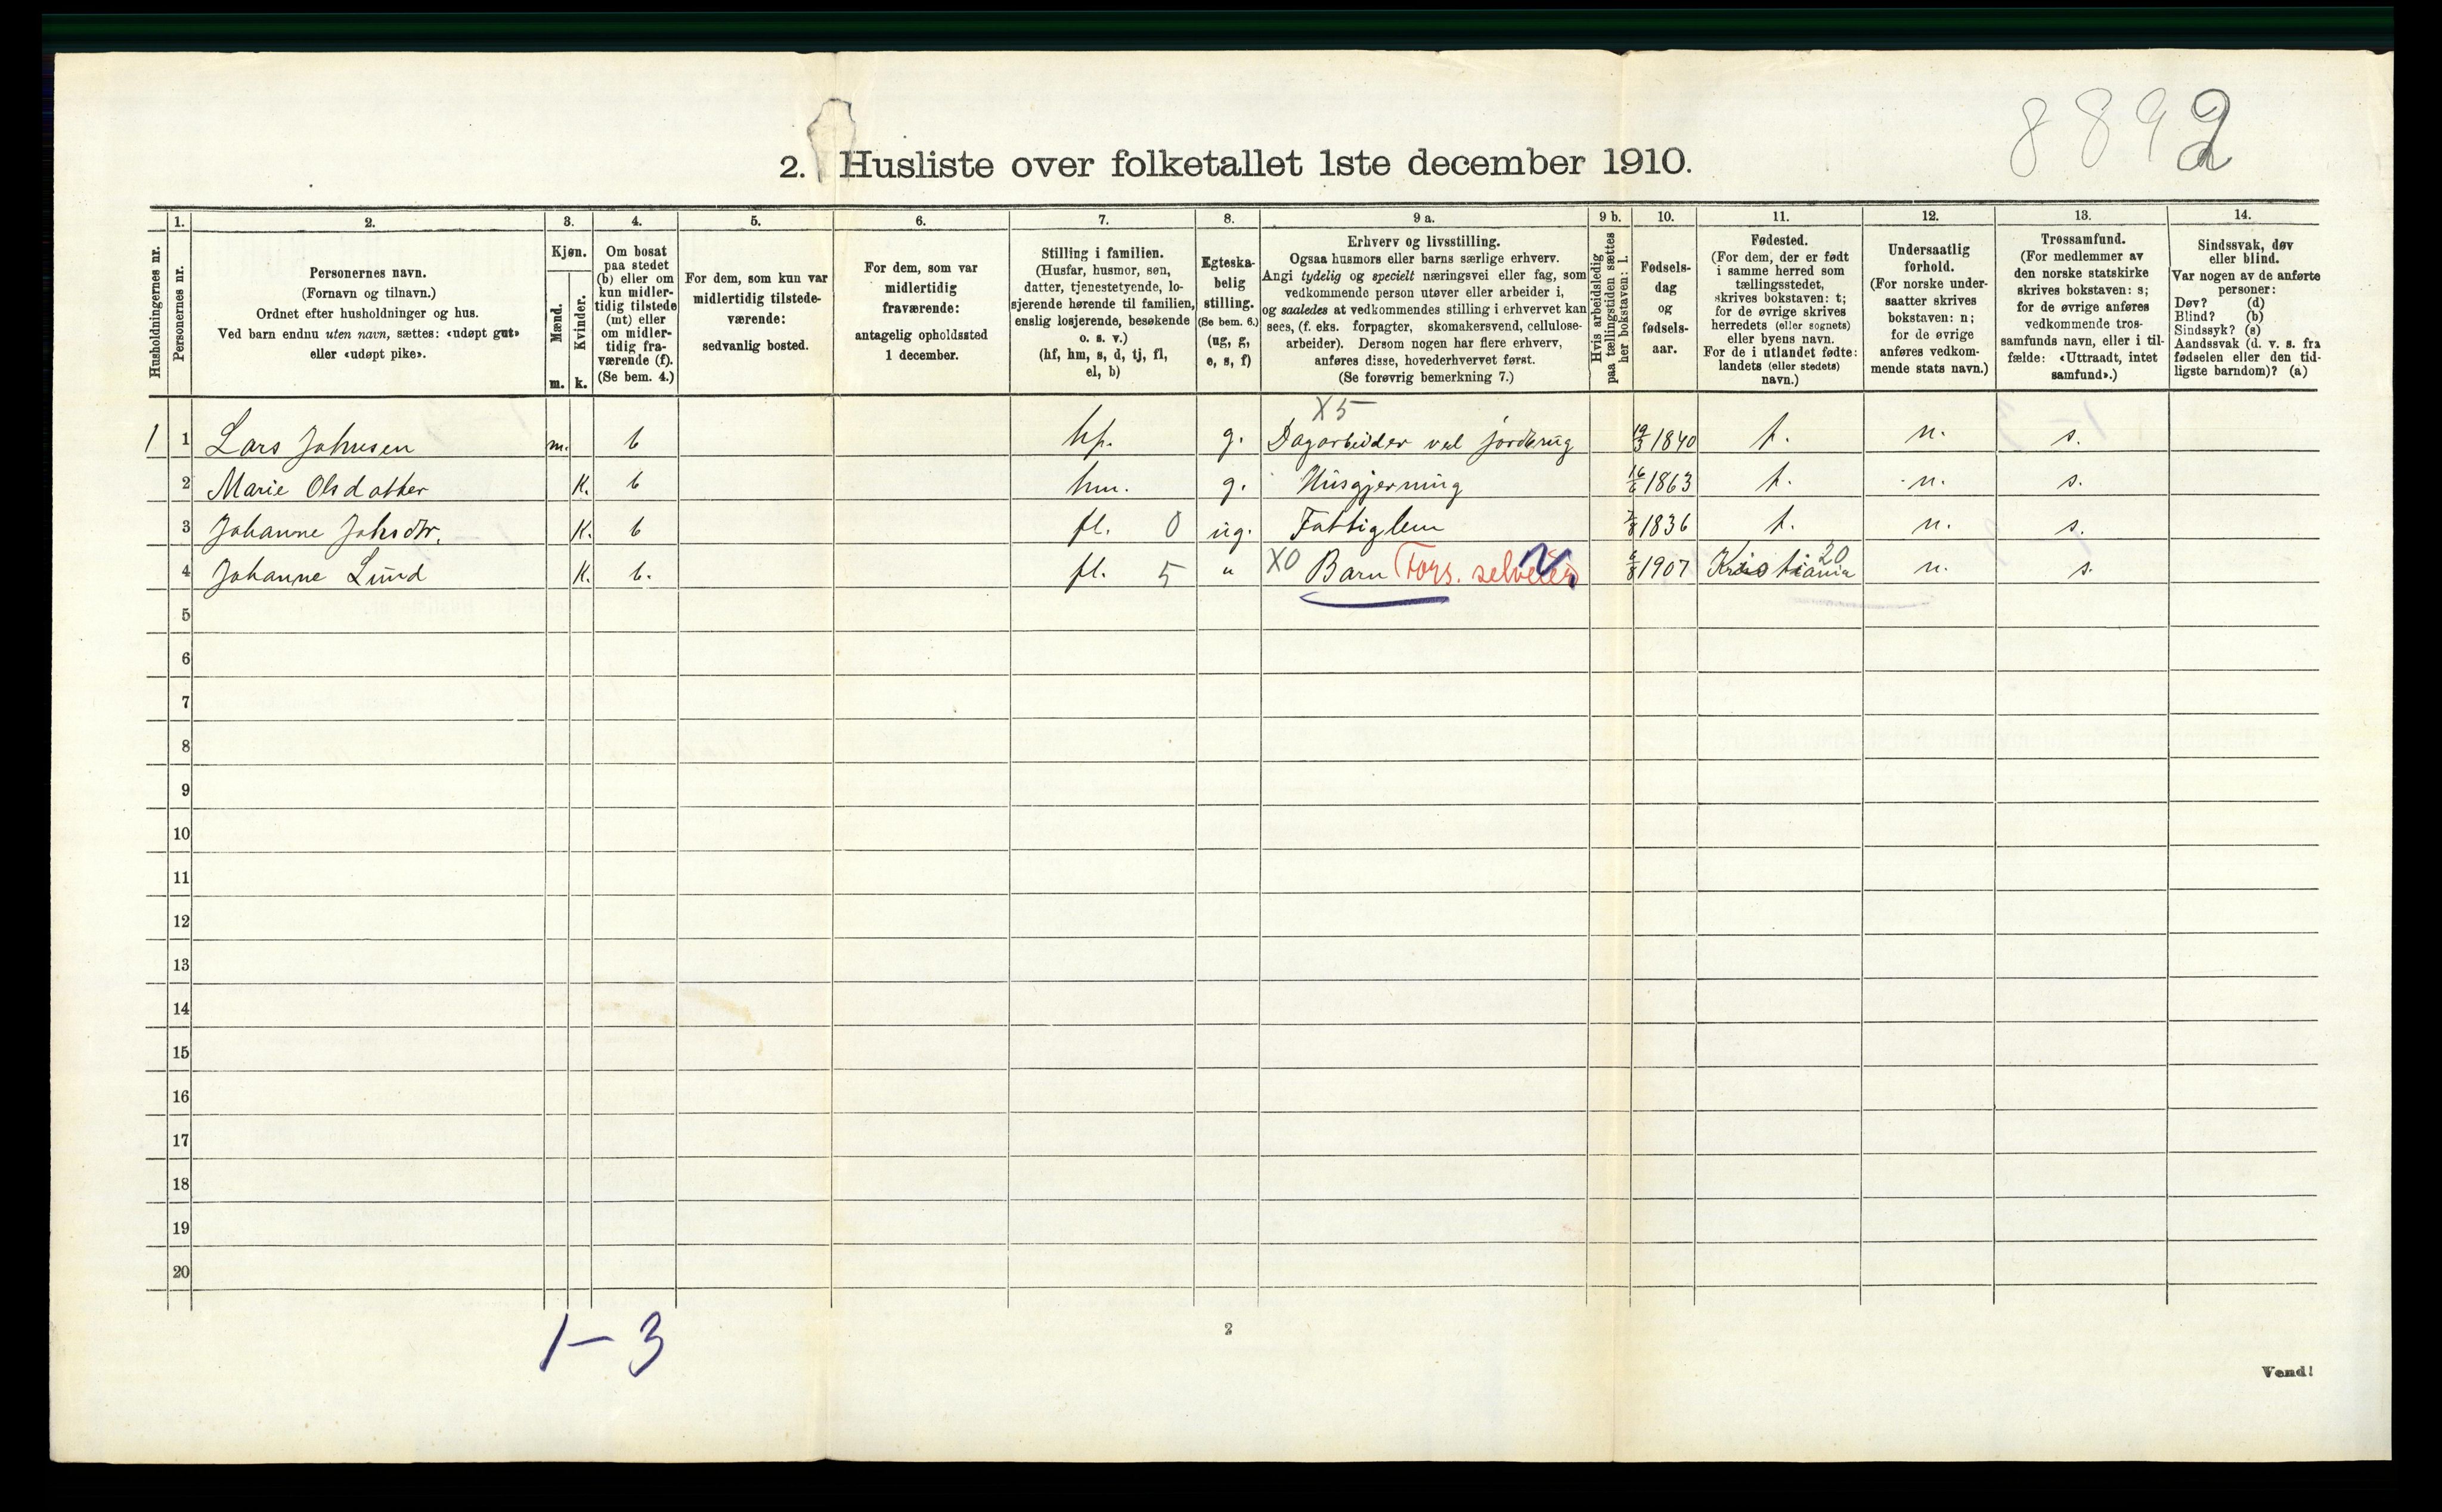 8892
2. Husliste over folketallet 1ste december 1910.
Husholdningernes nr.
1.
Personernes nr.
2.
Personernes navn.
(Fornavn og tilnavn.)
Ordnet efter husholdninger og hus.
Ved barn endnu uten navn, sættes: «udøpt gut»
eller «udøpt pike».
3.
Kjøn.
Mænd.
Kvinder.
m. k.
4.
Om bosat
paa stedet
(b) eller om
kun midler-
tidig tilstede
(mt) eller
om midler-
tidig fra-
værende (f).
(Se bem. 4.)
5.
For dem, som kun var
midlertidig tilstede-
værende:
sedvanlig bosted.
6.
For dem, som var
midlertidig
fraværende:
antagelig opholdssted
1 december.
7.
Stilling i familien.
(Husfar, husmor, søn,
datter, tjenestetyende, lo-
sjerende hørende til familien,
enslig losjerende, besøkende
o. s. v.)
(hf, hm, s, d, tj, fl,
el, b)
8.
Egteska-
belig
stilling.
(Se bem. 6.)
(ug, g,
e, s, f)
9 a.
Erhverv og livsstilling.
Ogsaa husmors eller barns særlige erhverv.
Angi tydelig og specielt næringsvei eller fag, som
vedkommende person utøver eller arbeider i,
og saaledes at vedkommendes stilling i erhvervet kan
sees, (f. eks. forpagter, skomakersvend, cellulose-
arbeider). Dersom nogen har flere erhverv,
anføres disse, hovederhvervet først.
(Se forøvrig bemerkning 7.)
9 b.
Hvis arbeidsledig
paa tællingstiden sættes
her bokstaven: l.
10.
Fødsels-
dag
og
fødsels-
aar.
11.
Fødested.
(For dem, der er født
i samme herred som
tællingsstedet,
skrives bokstaven: t;
for de øvrige skrives
herredets (eller sognets)
eller byens navn.
For de i utlandet fødte:
landets (eller stedets)
navn.)
12.
Undersaatlig
forhold.
(For norske under-
saatter skrives
bokstaven: n;
for de øvrige
anføres vedkom-
mende stats navn.)
13.
Trossamfund.
(For medlemmer av
den norske statskirke
skrives bokstaven: s;
for de øvrige anføres
vedkommende tros-
samfunds navn, eller i til-
fælde: «Uttraadt, intet
samfund».)
14.
Sindssvak, døv
eller blind.
Var nogen av de anførte
personer:
Døv? (d)
Blind? (b)
Sindssyk? (s)
Aandssvak (d. v. s. fra
fødselen eller den tid-
ligste barndom)? (a)
X5
1 1 Lars Johnsen m. b hf. g. Dagarbeider ved jordbrug 19/3 1840 t. n. s.
2 Marie Olsdatter K. b hm. g. Husgjerning 16/6 1863 t. n. s.
3 Johanne Johsdtr. K. b fl. 0 ug. Fattiglem 7/8 1836 t. n. s.
4 Johanne Lund K. b. fl. 5 " X0 Barn (Fors. selveier 6/8 1907 Kristiania 20 n. s.
5
6
7
8
9
10
11
12
13
14
15
16
17
18
19
20
1-3
2
Vend!